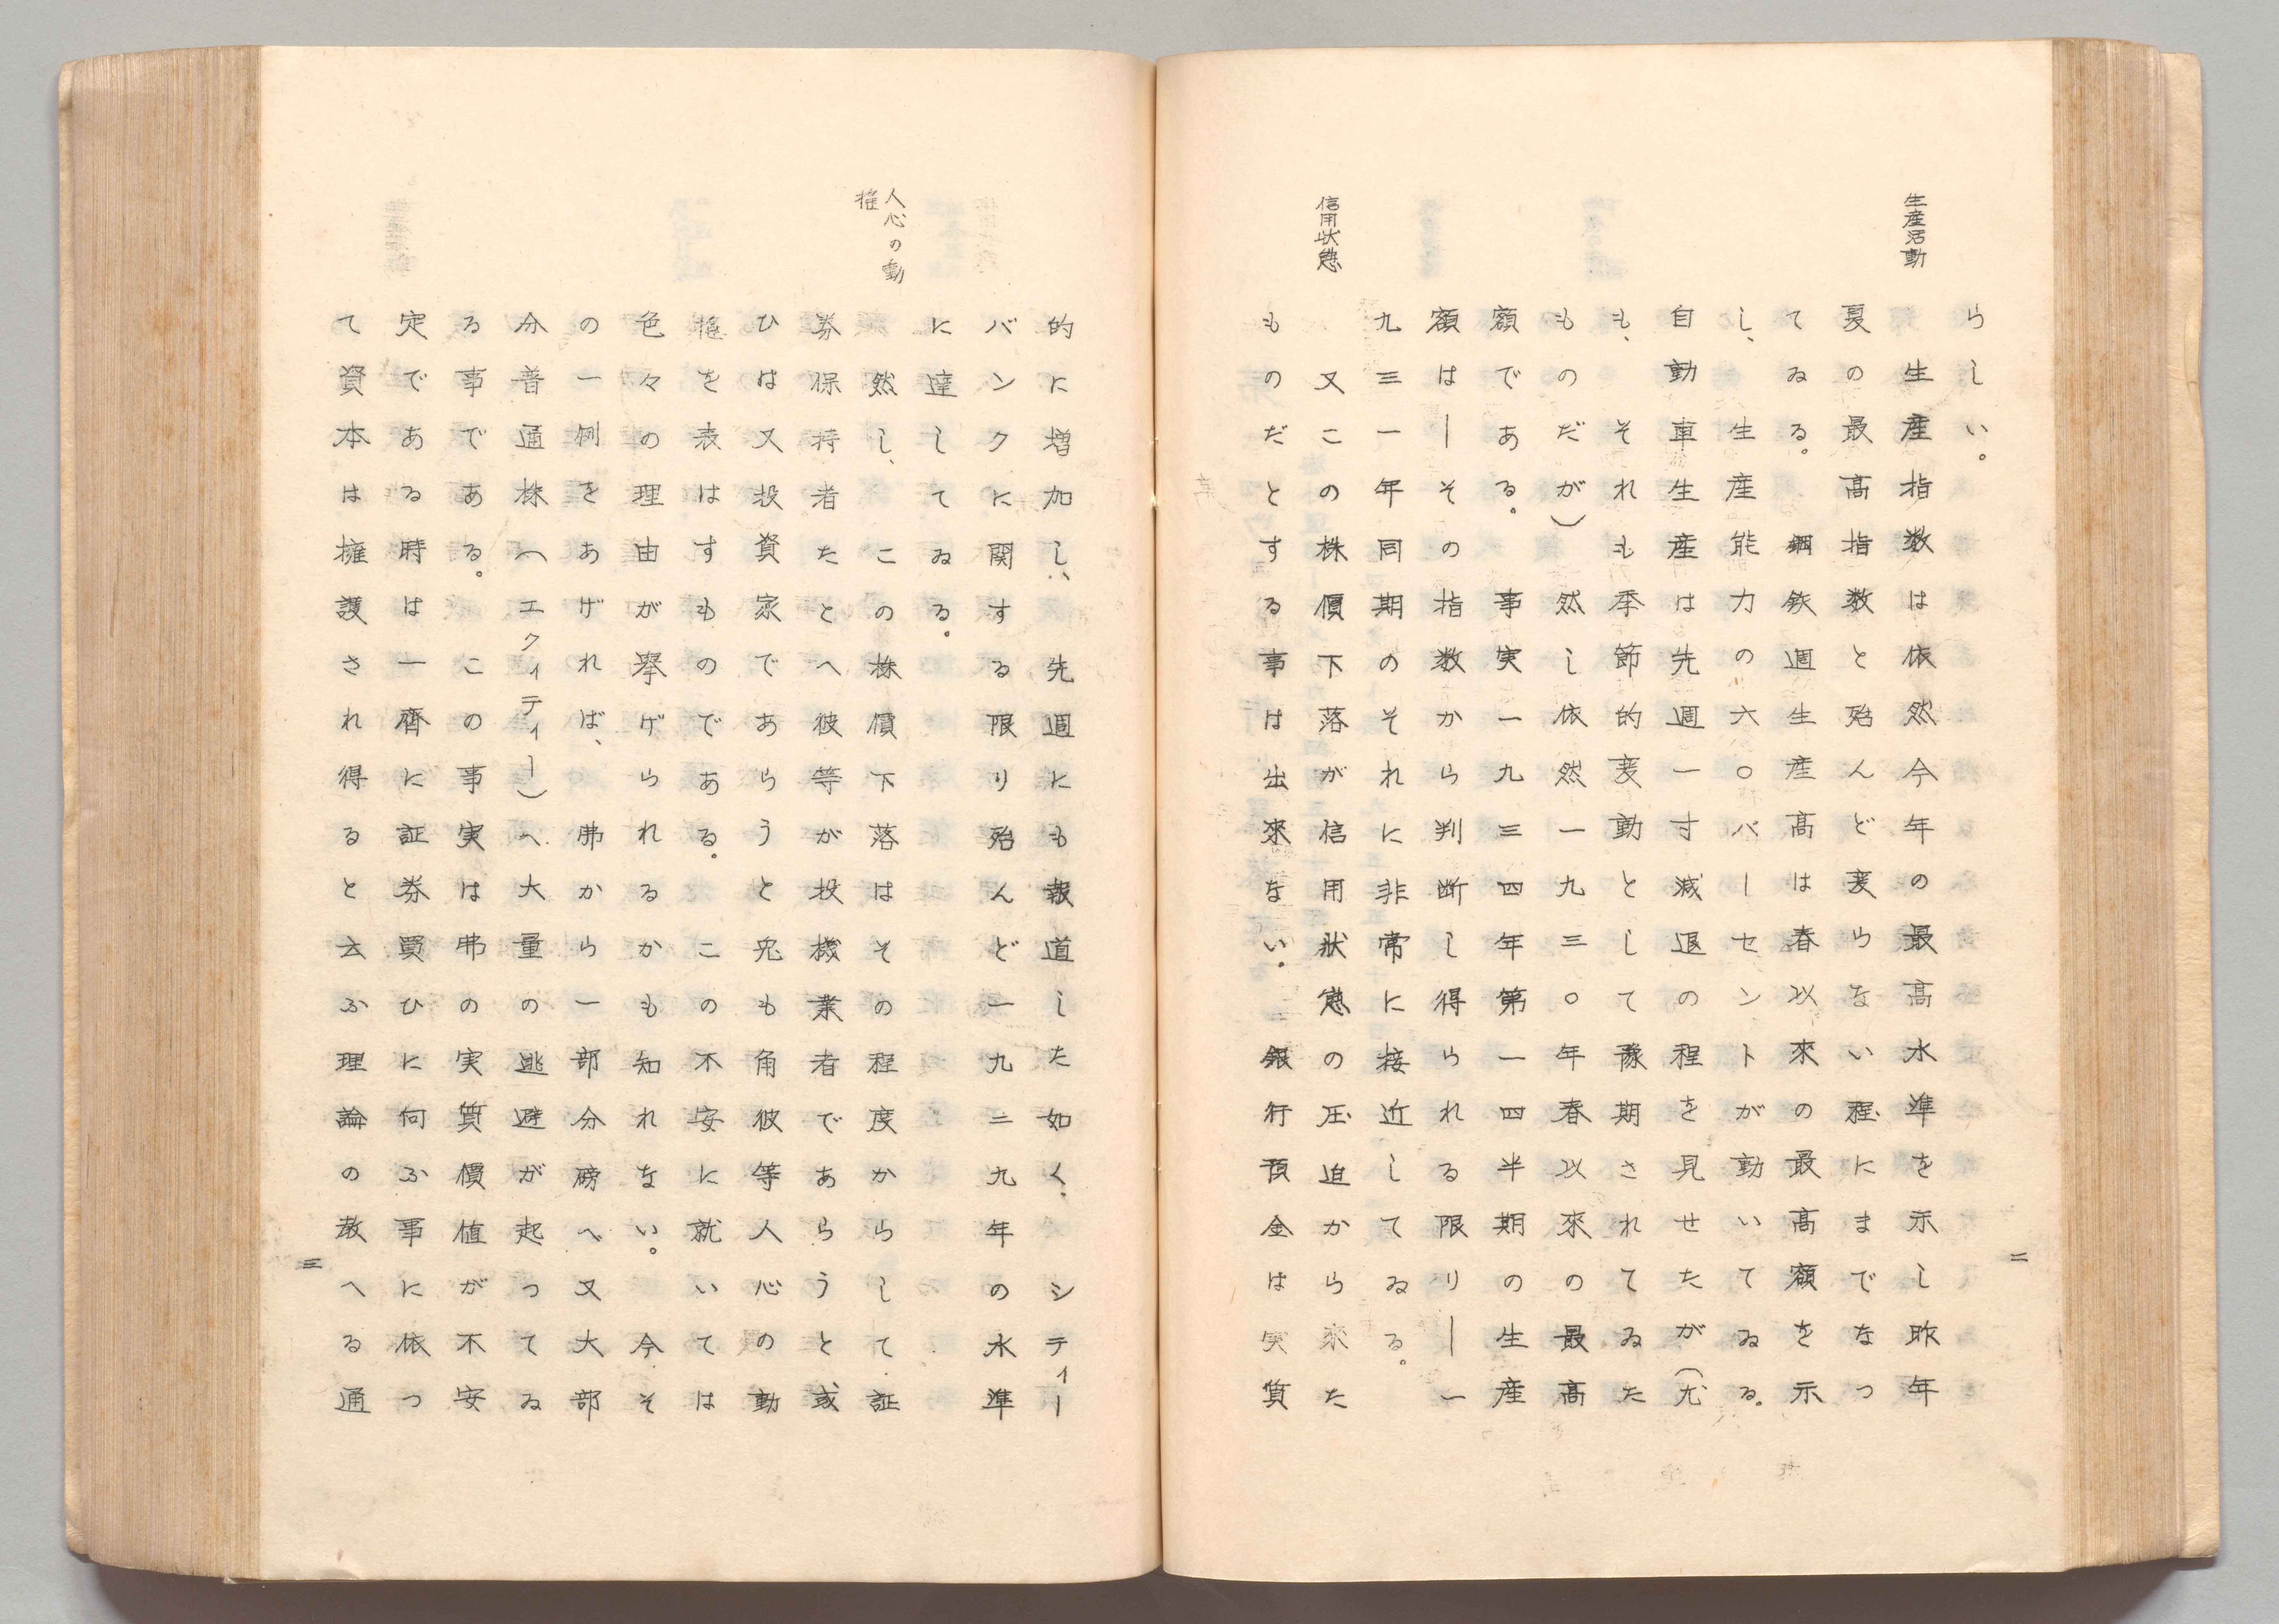 生産活動
信用状態
らしい。
生産指数は依然今年の最高水準を示し昨年
夏の最高指数と殆んど変らない程にまでなつ
てゐる。鋼鉄週生産高は春以來の最高額を示
し、生産能力の六〇パーセントが動いてゐる。
自動車生産は先週一寸減退の程を見せたが(尤
も、それも季節的変動として豫期されてゐた
ものだが)然し依然一九三〇年春以來の最高
額である。事実一九三四年第一四半期の生産
額は―その指数から判断し得られる限り―一
九三一年同期のそれに非常に接近してゐる。
又この株價下落が信用状態の圧迫から來た
ものだとする事は出來ない。銀行預金は実貭
二
人心の動
揺
的に増加し、先週にも報道した如く、シティー
バンクに関する限り殆んど一九二九年の水準
に達してゐる。
然し、この株價下落はその程度からして証
券保持者たとへ彼等が投機業者であらうと、或
ひは又投資家であらうと兎も角彼等人心の動
揺を表はすものである。この不安に就いては
色々の理由が挙げられるかも知れない。今そ
の一例をあげれば、弗から一部分磅へ又大部
分普通株(エクィティー)へ大量の逃避が起つてゐ
る事である。この事実は弗の実質價値が不安
定である時は一齊に証券買ひに何ふ事に依つ
て資本は擁護され得ると云ふ理論の教へる通
三